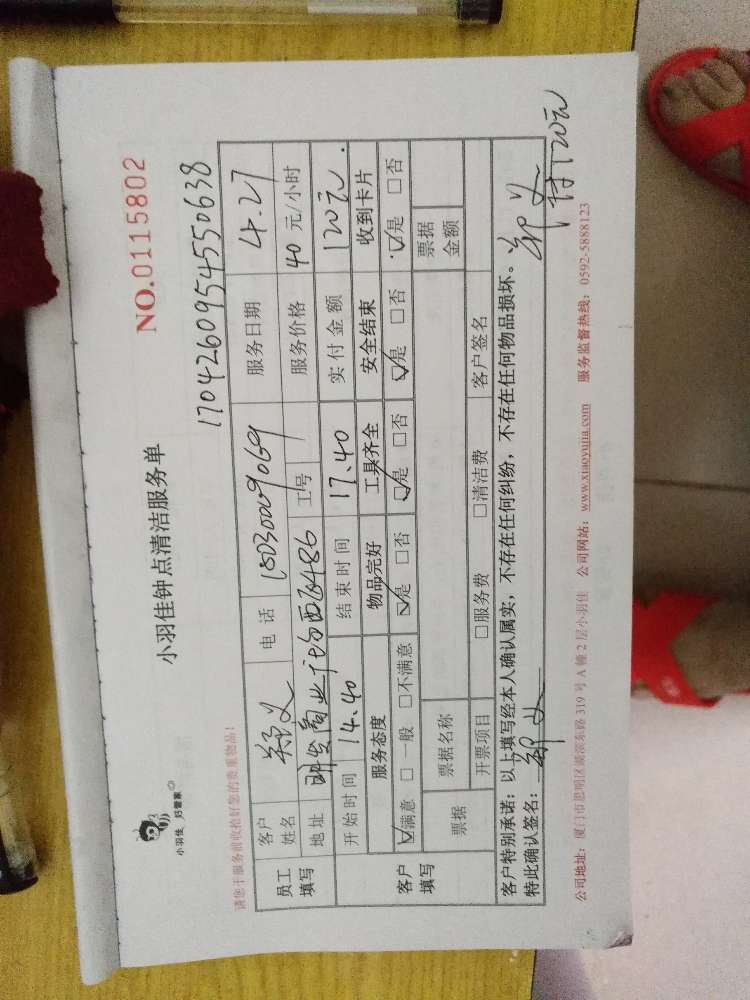 小羽佳 好管家
小羽佳钟点清洁服务单
NO.0115802
请您于服务前收拾好您的贵重物品!
17042609545550638
员工填写
客户姓名 郑义 电话 服务日期 4.27
地址 明发商业广场西 工号 服务价格 40 元/小时
开始时间 14.40 结束时间 17.40 实付金额 120元.
客户填写
服务态度 物品完好 工具齐全 安全结束 收到卡片
☑满意 □一般 □不满意 ☑是 □否 ☑是 □否 ☑是 □否 ☑是 □否
票据 票据名称 票据金额
开票项目 □服务费 □清洁费 客户签名
客户特别承诺:以上填写经本人确认属实,不存在任何纠纷,不存在任何物品损坏。
特此确认签名:郑义 郑义
付120元
公司地址:厦门市思明区湖滨东路 319 号 A 幢 2 层小羽佳 公司网站:www.xiaoyujia.com 服务监督热线:0592-5888123